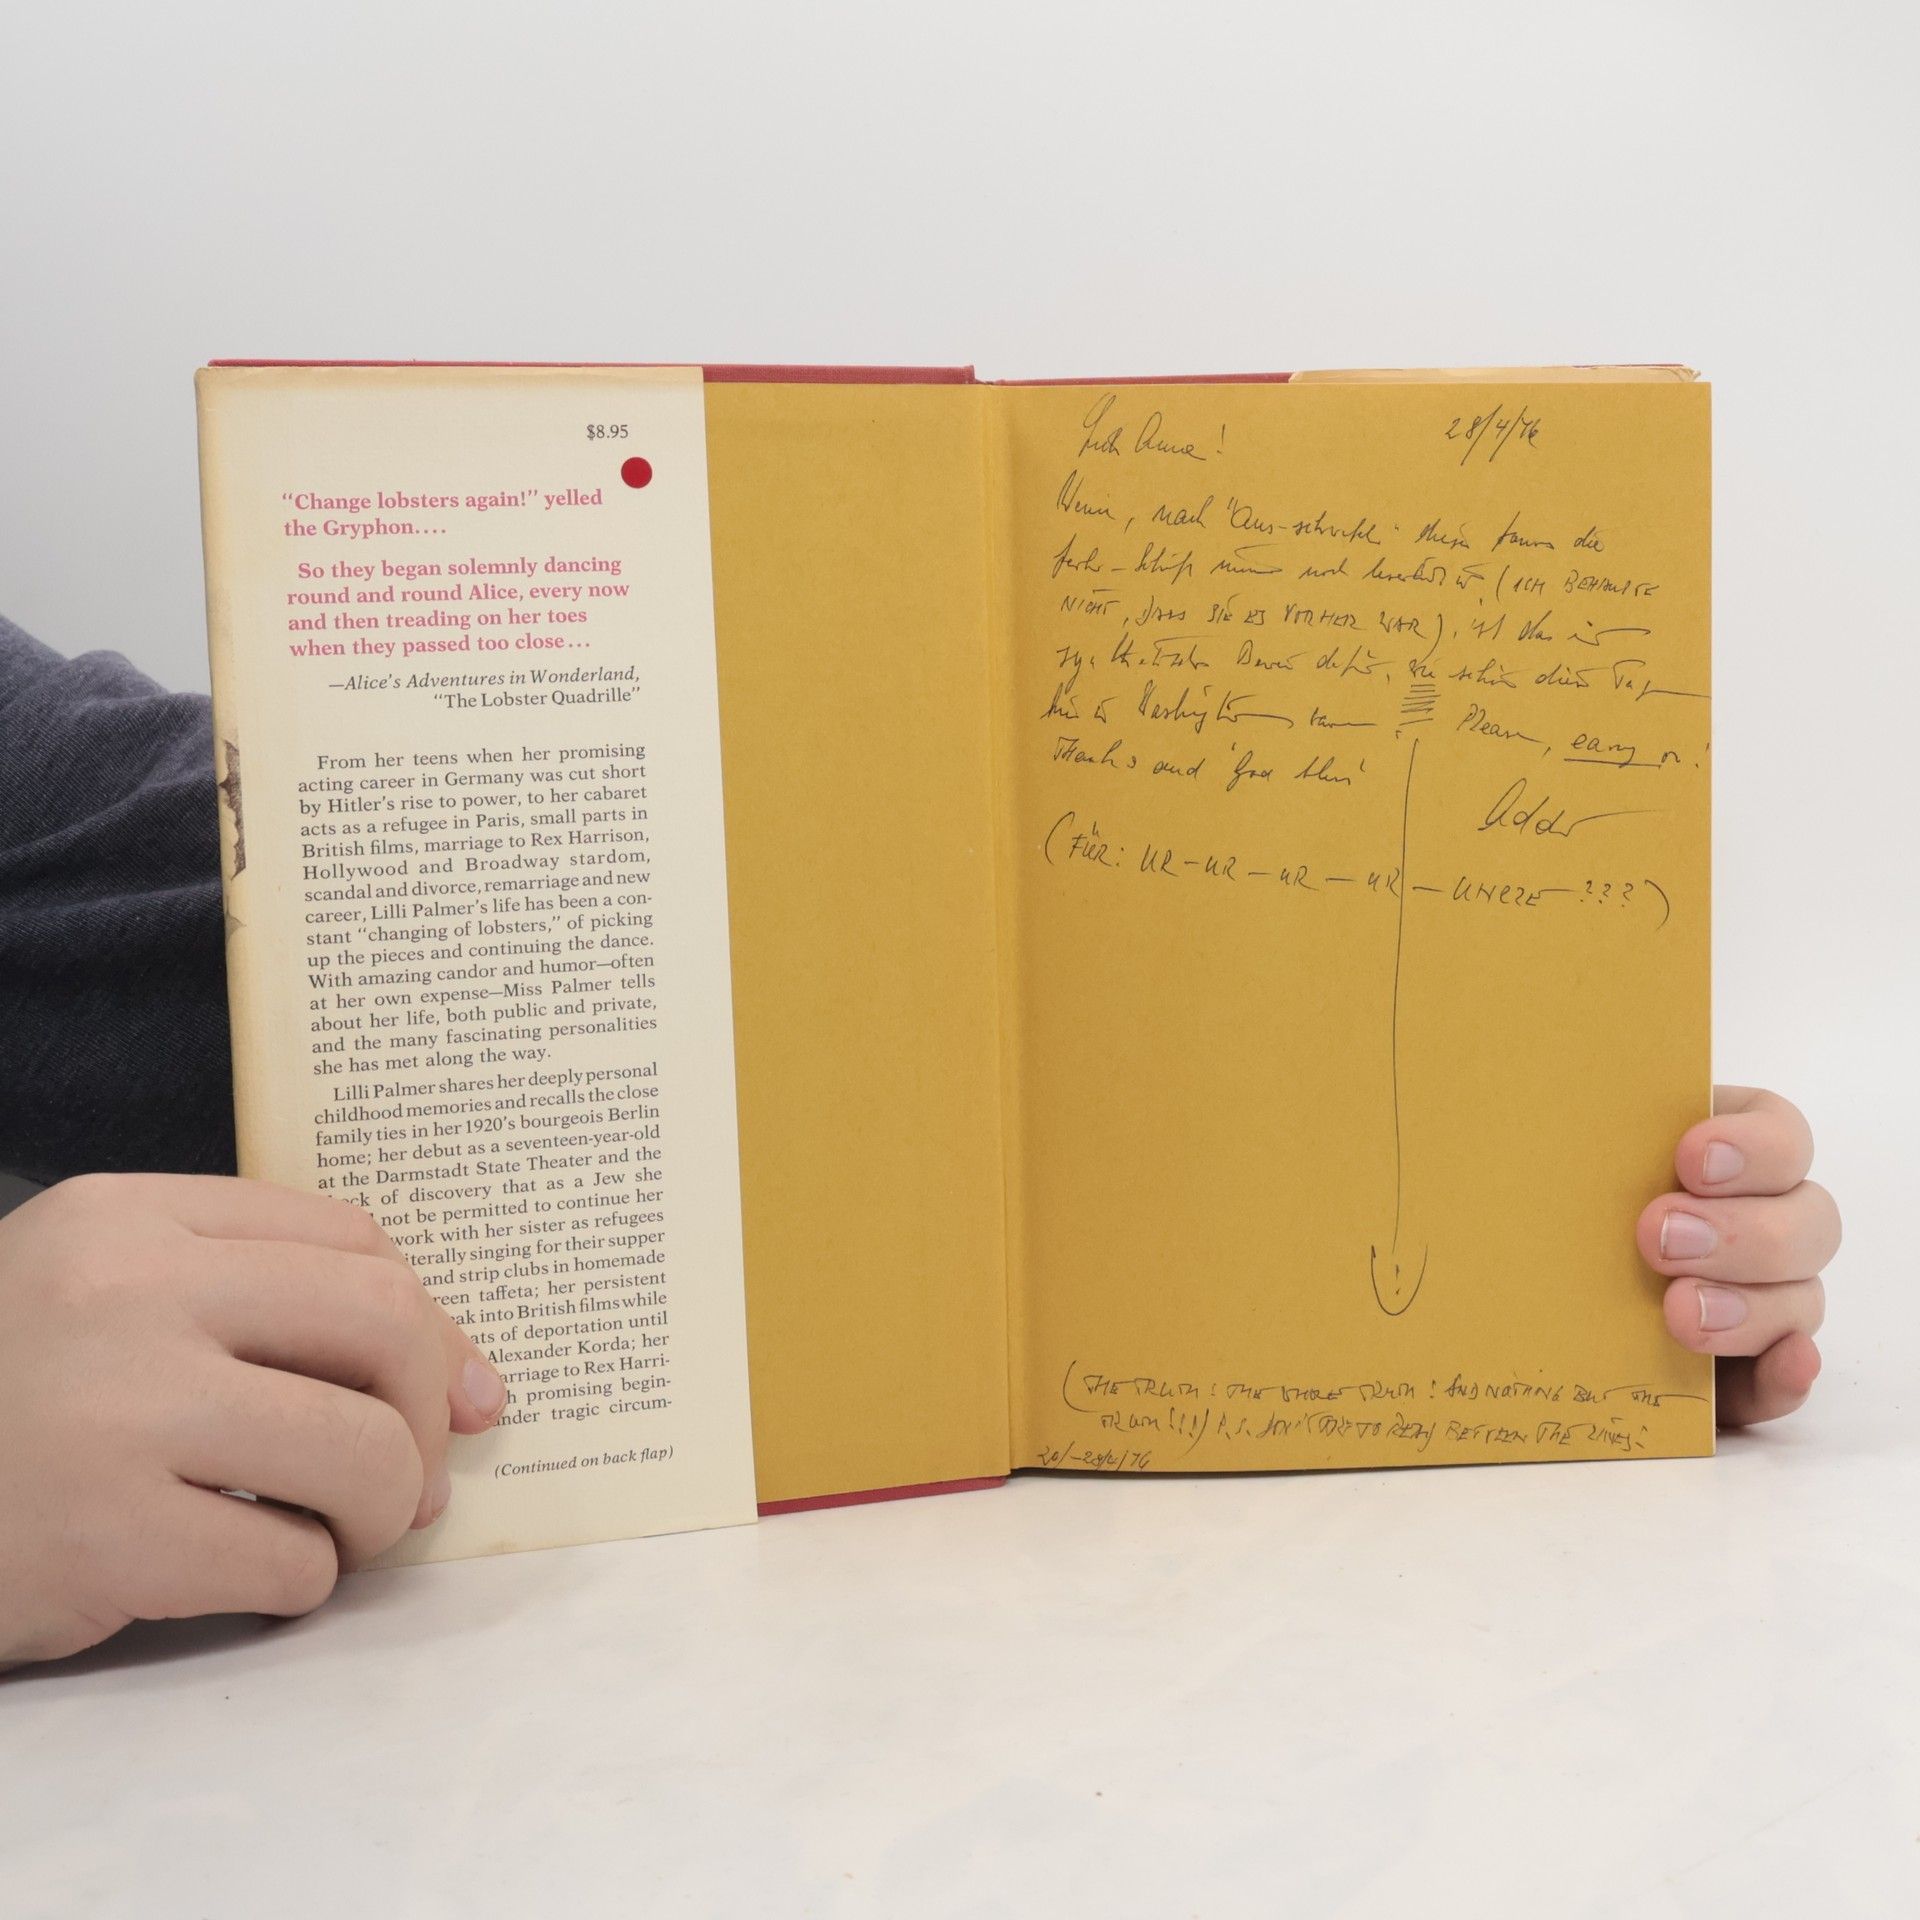 $8.95
“Change lobsters again!” yelled
the Gryphon....
So they began solemnly dancing
round and round Alice, every now
and then treading on her toes
when they passed too close...
—Alice’s Adventures in Wonderland,
“The Lobster Quadrille”
From her teens when her promising
acting career in Germany was cut short
by Hitler’s rise to power, to her cabaret
acts as a refugee in Paris, small parts in
British films, marriage to Rex Harrison,
Hollywood and Broadway stardom,
scandal and divorce, remarriage and new
career, Lilli Palmer’s life has been a con-
stant “changing of lobsters,” of picking
up the pieces and continuing the dance.
With amazing candor and humor—often
at her own expense—Miss Palmer tells
about her life, both public and private,
and the many fascinating personalities
she has met along the way.
Lilli Palmer shares her deeply personal
childhood memories and recalls the close
family ties in her 1920’s bourgeois Berlin
home; her debut as a seventeen-year-old
at the Darmstadt State Theater and the
of discovery that as a Jew she
not be permitted to continue her
work with her sister as refugees
singing for their supper
and strip clubs in homemade
taffeta; her persistent
into British films while
of deportation until
Alexander Korda; her
to Rex Harri-
promising begin-
tragic circum-
(Continued on back flap)
28/4/76
Wenn, nach "Aus- die
(ICH BEHAUPTE
NICHT, DASS SIE ES VORHER WAR), ist das
wie schön Tag
Washington Please, carry on!
Thanks and
(FÜR: UR-UR-UR-UR- ???)
(THE TRUTH! THE WHOLE TRUTH! AND NOTHING BUT THE
TRUTH!!!) P.S. DON'T TO READ BETWEEN THE LINES!